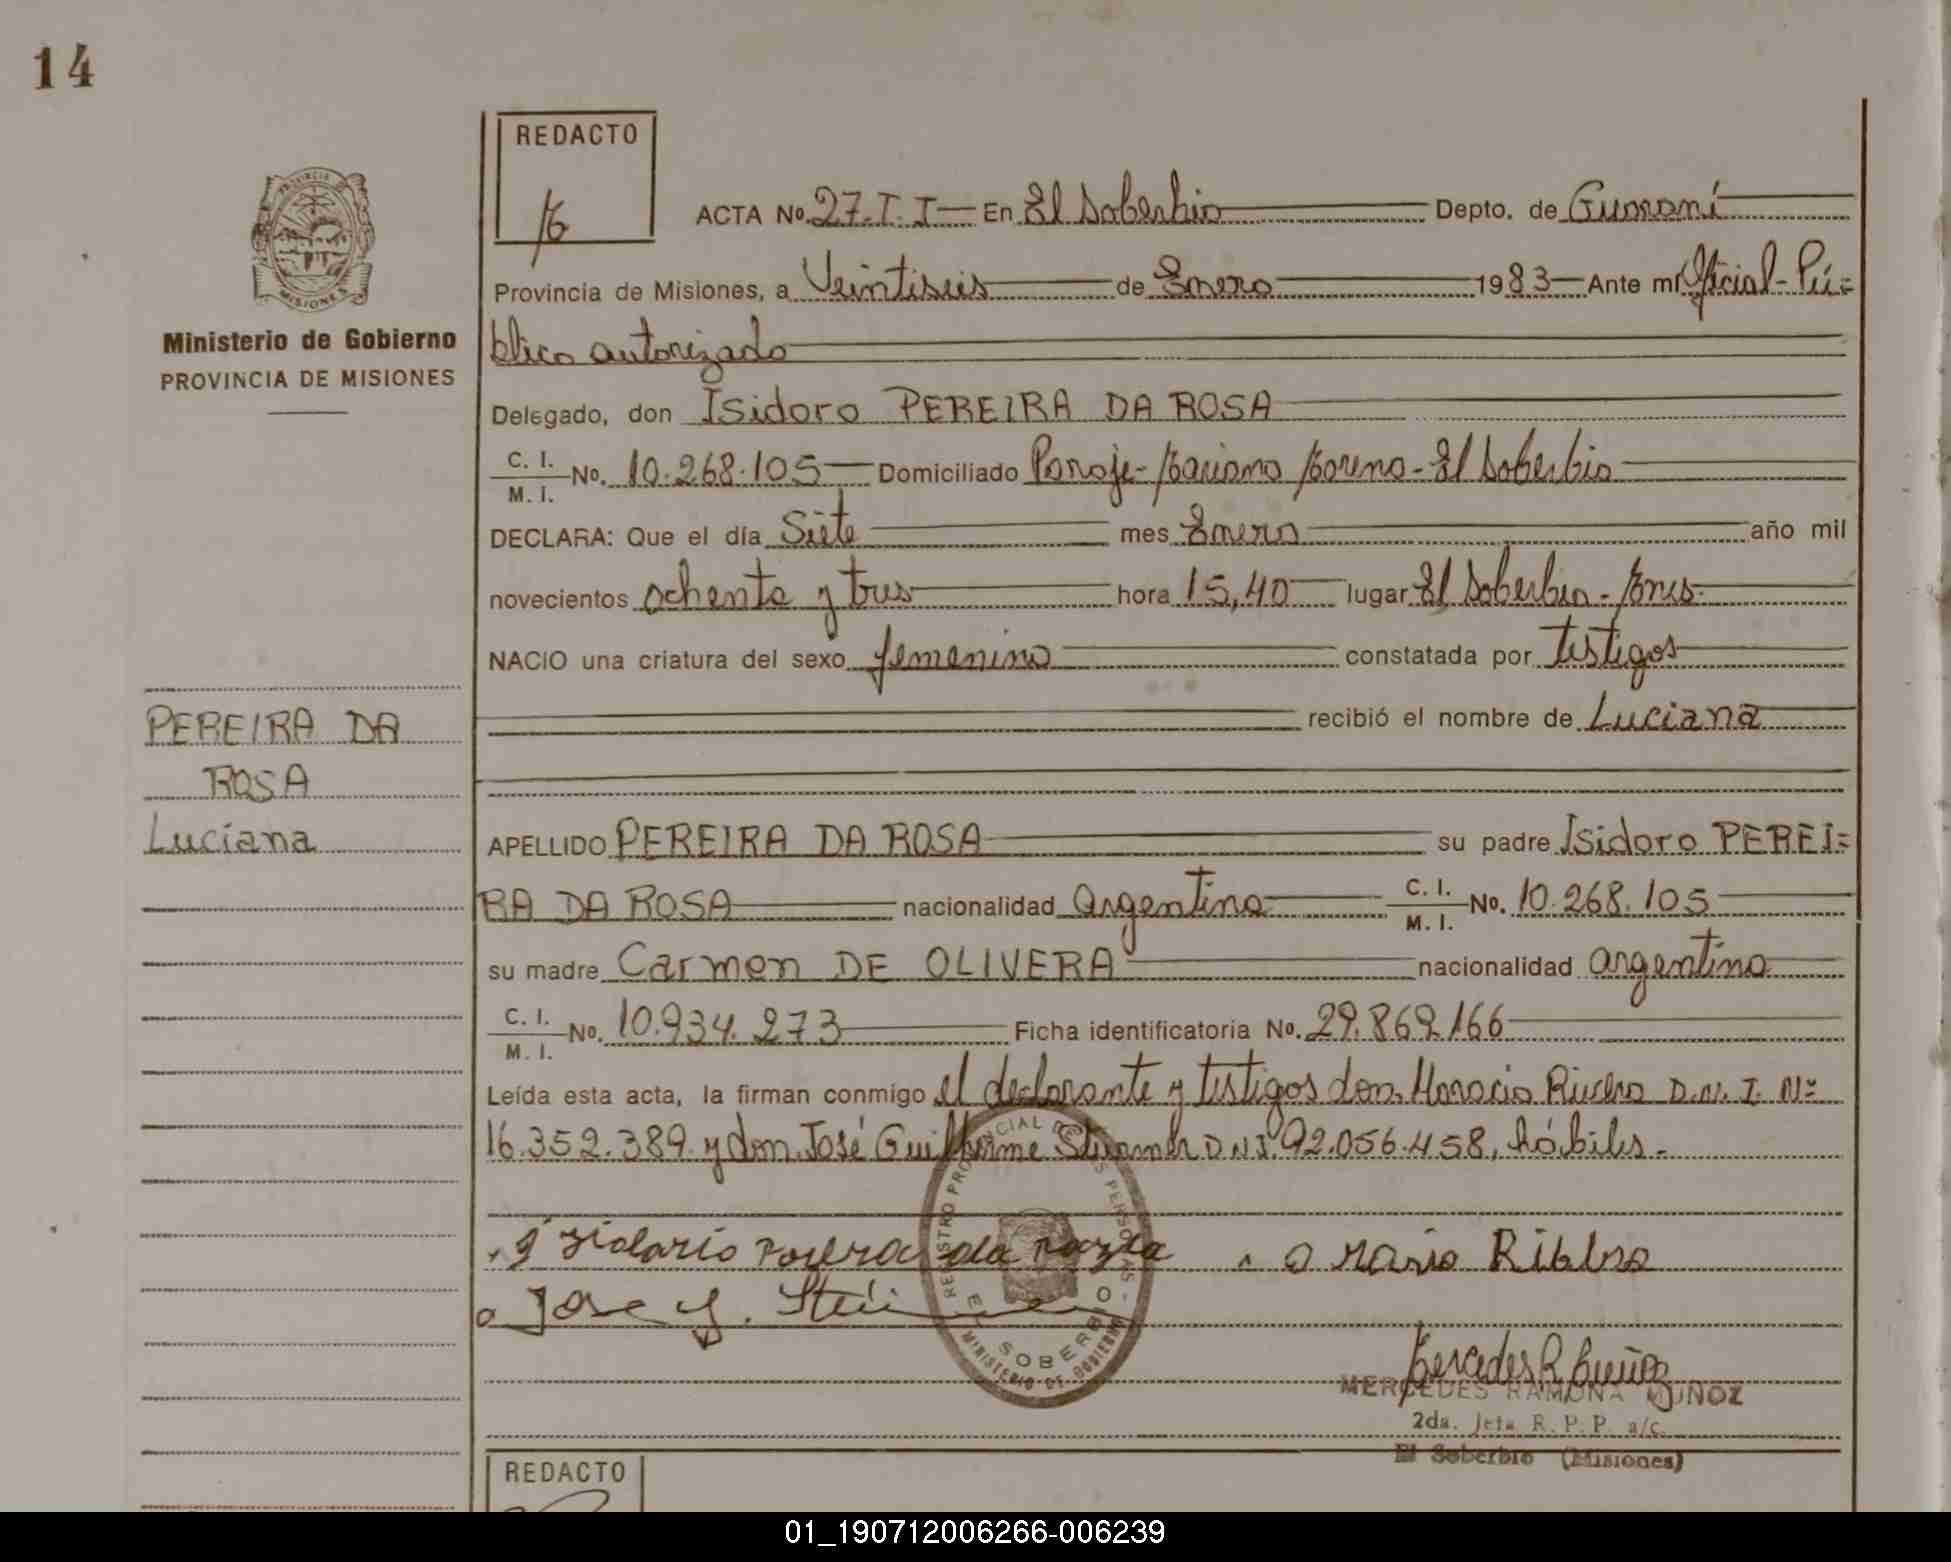 14
REDACTO
ACTA No. 27.T.I En El Soberbio Depto. de Guaraní
Provincia de Misiones, a Veintiseis de Enero 1983 Ante mí Oficial-Pú=
Ministerio de Gobierno
blico autorizado
PROVINCIA DE MISIONES
Delegado, don Isidoro PEREIRA DA ROSA
C. I.
M. I. No. 10.268.105 Domiciliado Paraje-Mariano Moreno-El Soberbio
DECLARA: Que el día Siete mes Enero año mil
novecientos ochenta y tres hora 15,40 lugar El Soberbio-Mnes.
NACIO una criatura del sexo femenino constatada por testigos
recibió el nombre de Luciana
PEREIRA DA
ROSA
Luciana
APELLIDO PEREIRA DA ROSA su padre Isidoro PEREI=
RA DA ROSA nacionalidad Argentina C. I. M. I. No. 10.268.105
su madre Carmen DE OLIVERA nacionalidad argentina
C. I. M. I. No. 10.934.273 Ficha identificatoria No. 29.869.166
Leída esta acta, la firman conmigo el declarante y testigos don Horacio Rivero D.N.I. Nº
16.352.389 y don José Guilherme D.N.I. 92.056.458, hábiles.-
Jose G.
REGISTRO PROVINCIAL DE LAS PERSONAS
EL SOBERBIO
MINISTERIO DE GOBIERNO
MERCEDES RAMONA MUÑOZ
2da. Jefa R. P. P. a/c.
El Soberbio (Misiones)
REDACTO
01_190712006266-006239